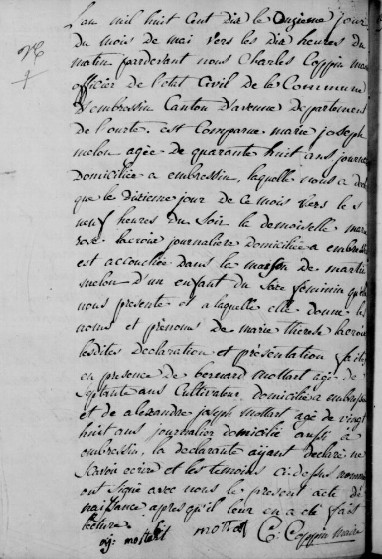 L'an mil huit Cent dix le onzieme jour
du mois de mai vers les dix heures du
matin pardevant nous Charles Coppin maire
officier de l'etat Civil de la Commune
d'embressin Canton d'avenne departement
de l'ourte. est Comparue marie joseph
melon agée de quarante huit ans journa
domiciliée a embressin, laquelle nous a decl
que le dixieme jour de Ce mois vers les
neuf heures du Soir la demoiselle marie
rose lacroix journaliere domiciliée a embress
est accouchée dans la maison de martin
melon d'un enfant du Sexe feminin qu'elle
nous presente et a laquelle elle donne les
noms et prenoms de marie therese lacroix
lesdites declaration et présentation faites
en presence de bernard mottart agé de
Septante ans Cultivateur domicilié a embressin
et de alexandre joseph mottart agé de vingt
huit ans journalier domicilié aussi à
embressin, la declarante ayant declaré ne
Scavoir ecrire et les temoins Ci-dessus nommés
ont Signé avec nous le present acte de
naissance apres qu'il leur en a eté fait
lecture
mottart C: Coppin Maire